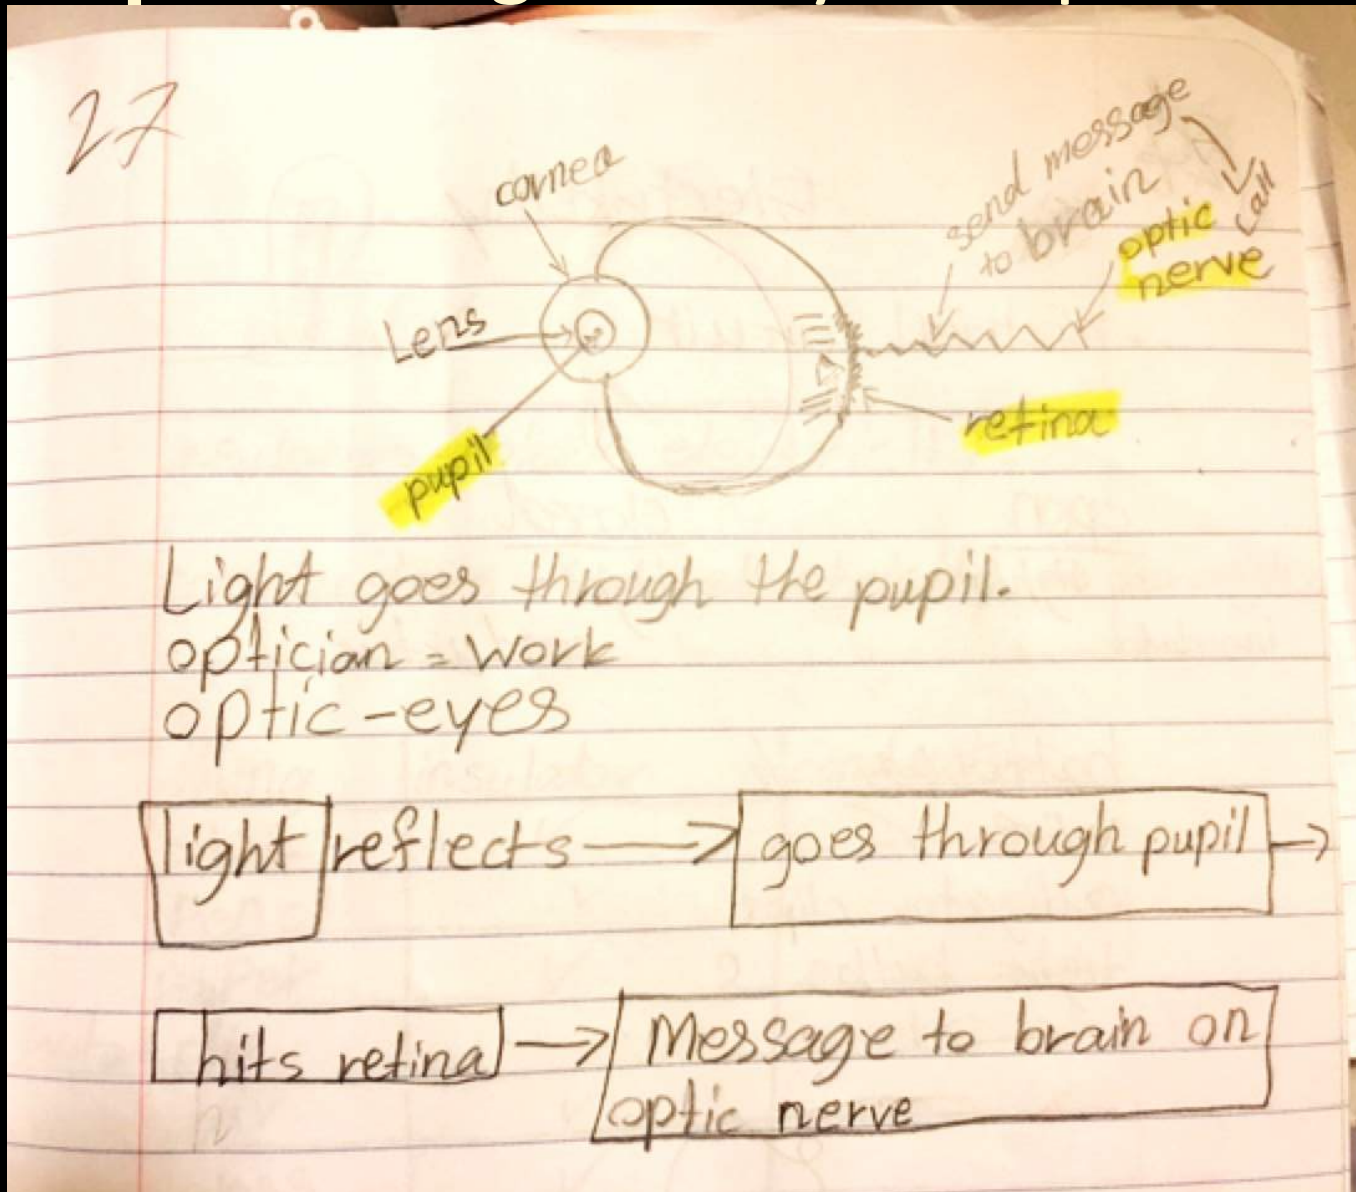 27
cornea
send message
to brain
call
optic
nerve
Lens
retina
pupil
Light goes through the pupil.
optician = work
optic - eyes
light reflects → goes through pupil →
hits retina → Message to brain on
optic nerve